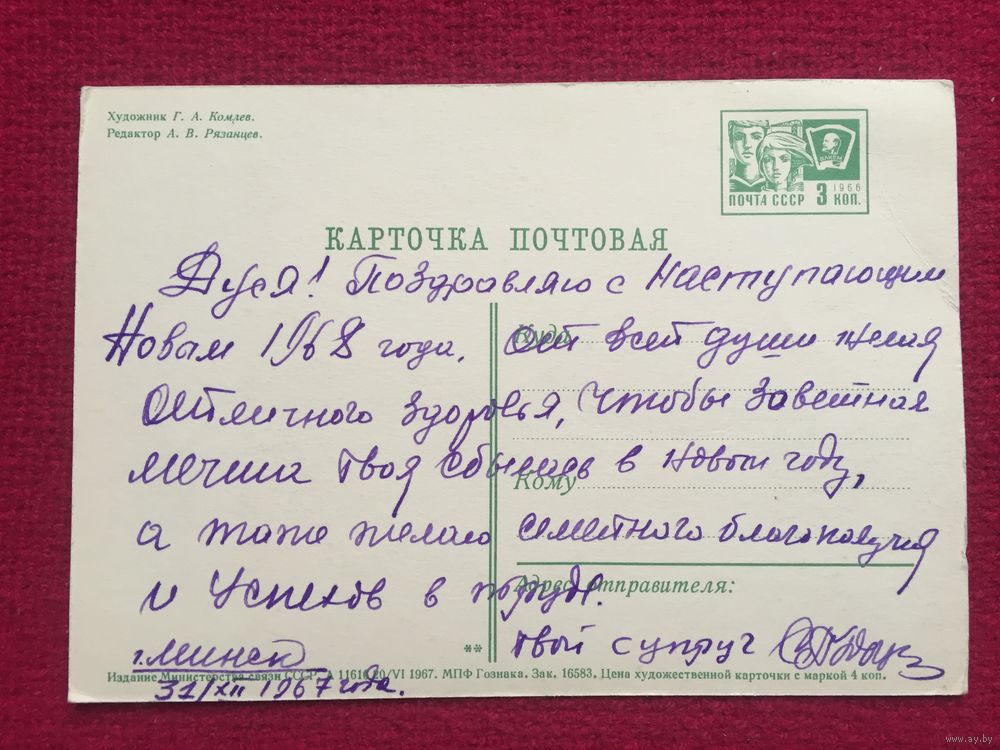 Художник Г. А. Комлев.
Редактор А. В. Рязанцев.
ВЛКСМ
1966
ПОЧТА СССР 3 КОП.
КАРТОЧКА ПОЧТОВАЯ
Дуся! Поздравляю с Наступающим
Новым 1968 года. от всей души желая
отличного здоровья, чтобы заветная
мечта твоя сбылась в новом году,
а также желаю семейного благополучия
и Успехов в труде.
Куда
Кому
Адрес отправителя:
твой супруг
г. Минск
31/XII 1967 года.
**
Издание Министерства связи СССР. А 11616 20/VI 1967. МПФ Гознака. Зак. 16583. Цена художественной карточки с маркой 4 коп.
www.ay.by